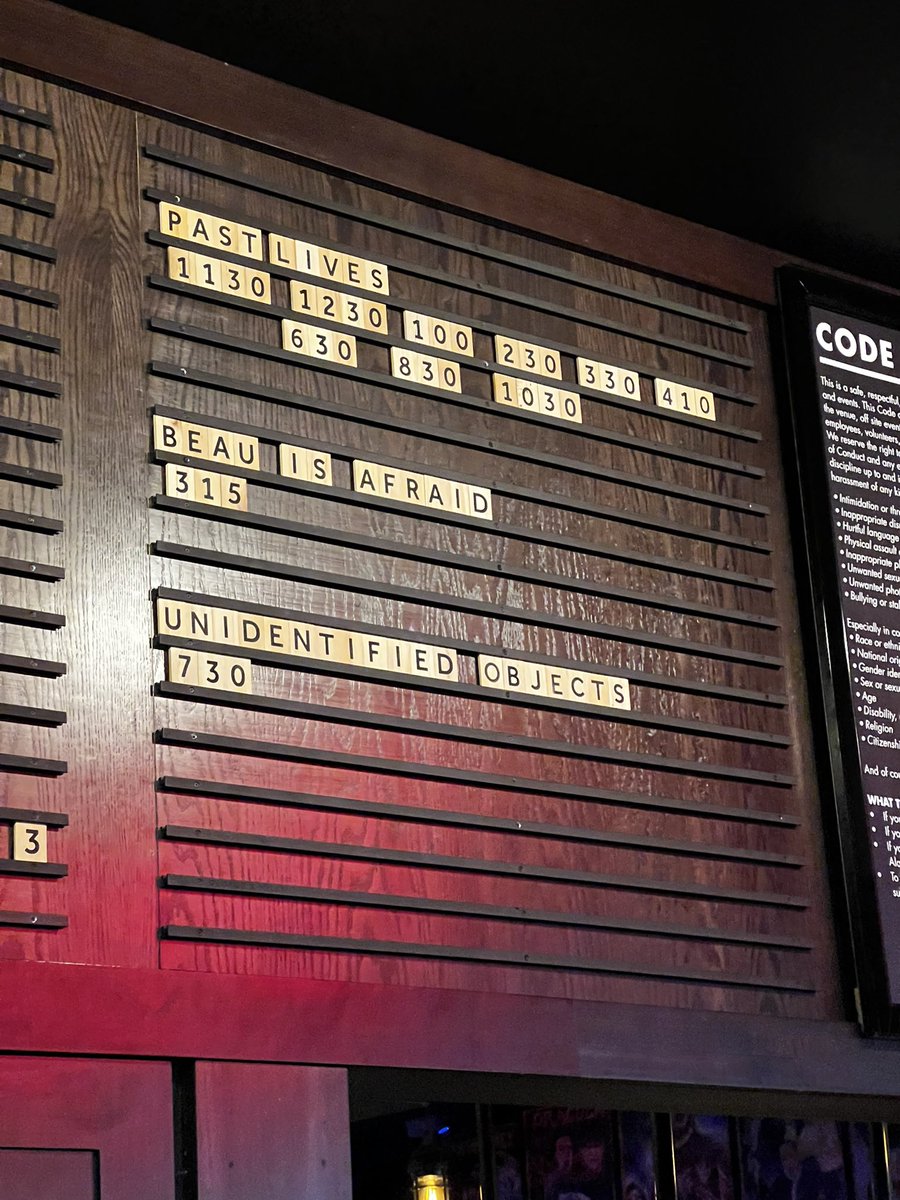 PAST LIVES
1130 1230 100 230 330 410
630 830 1030
BEAU IS AFRAID
315
UNIDENTIFIED OBJECTS
730
3
CODE
This is a safe, respectful,
and events. This Code
the venue, off site
employees, volunteers,
We reserve the right
of Conduct and any
discipline up to and
harassment of any
• Intimidation or
• Inappropriate
• Hurtful language
• Physical assault
• Inappropriate
• Unwanted
• Unwanted
• Bullying or
Especially in
• Race or
• National
• Gender
• Sex or
• Age
• Disability,
• Religion
•
And of
WHAT
• If
• If
• If
• To